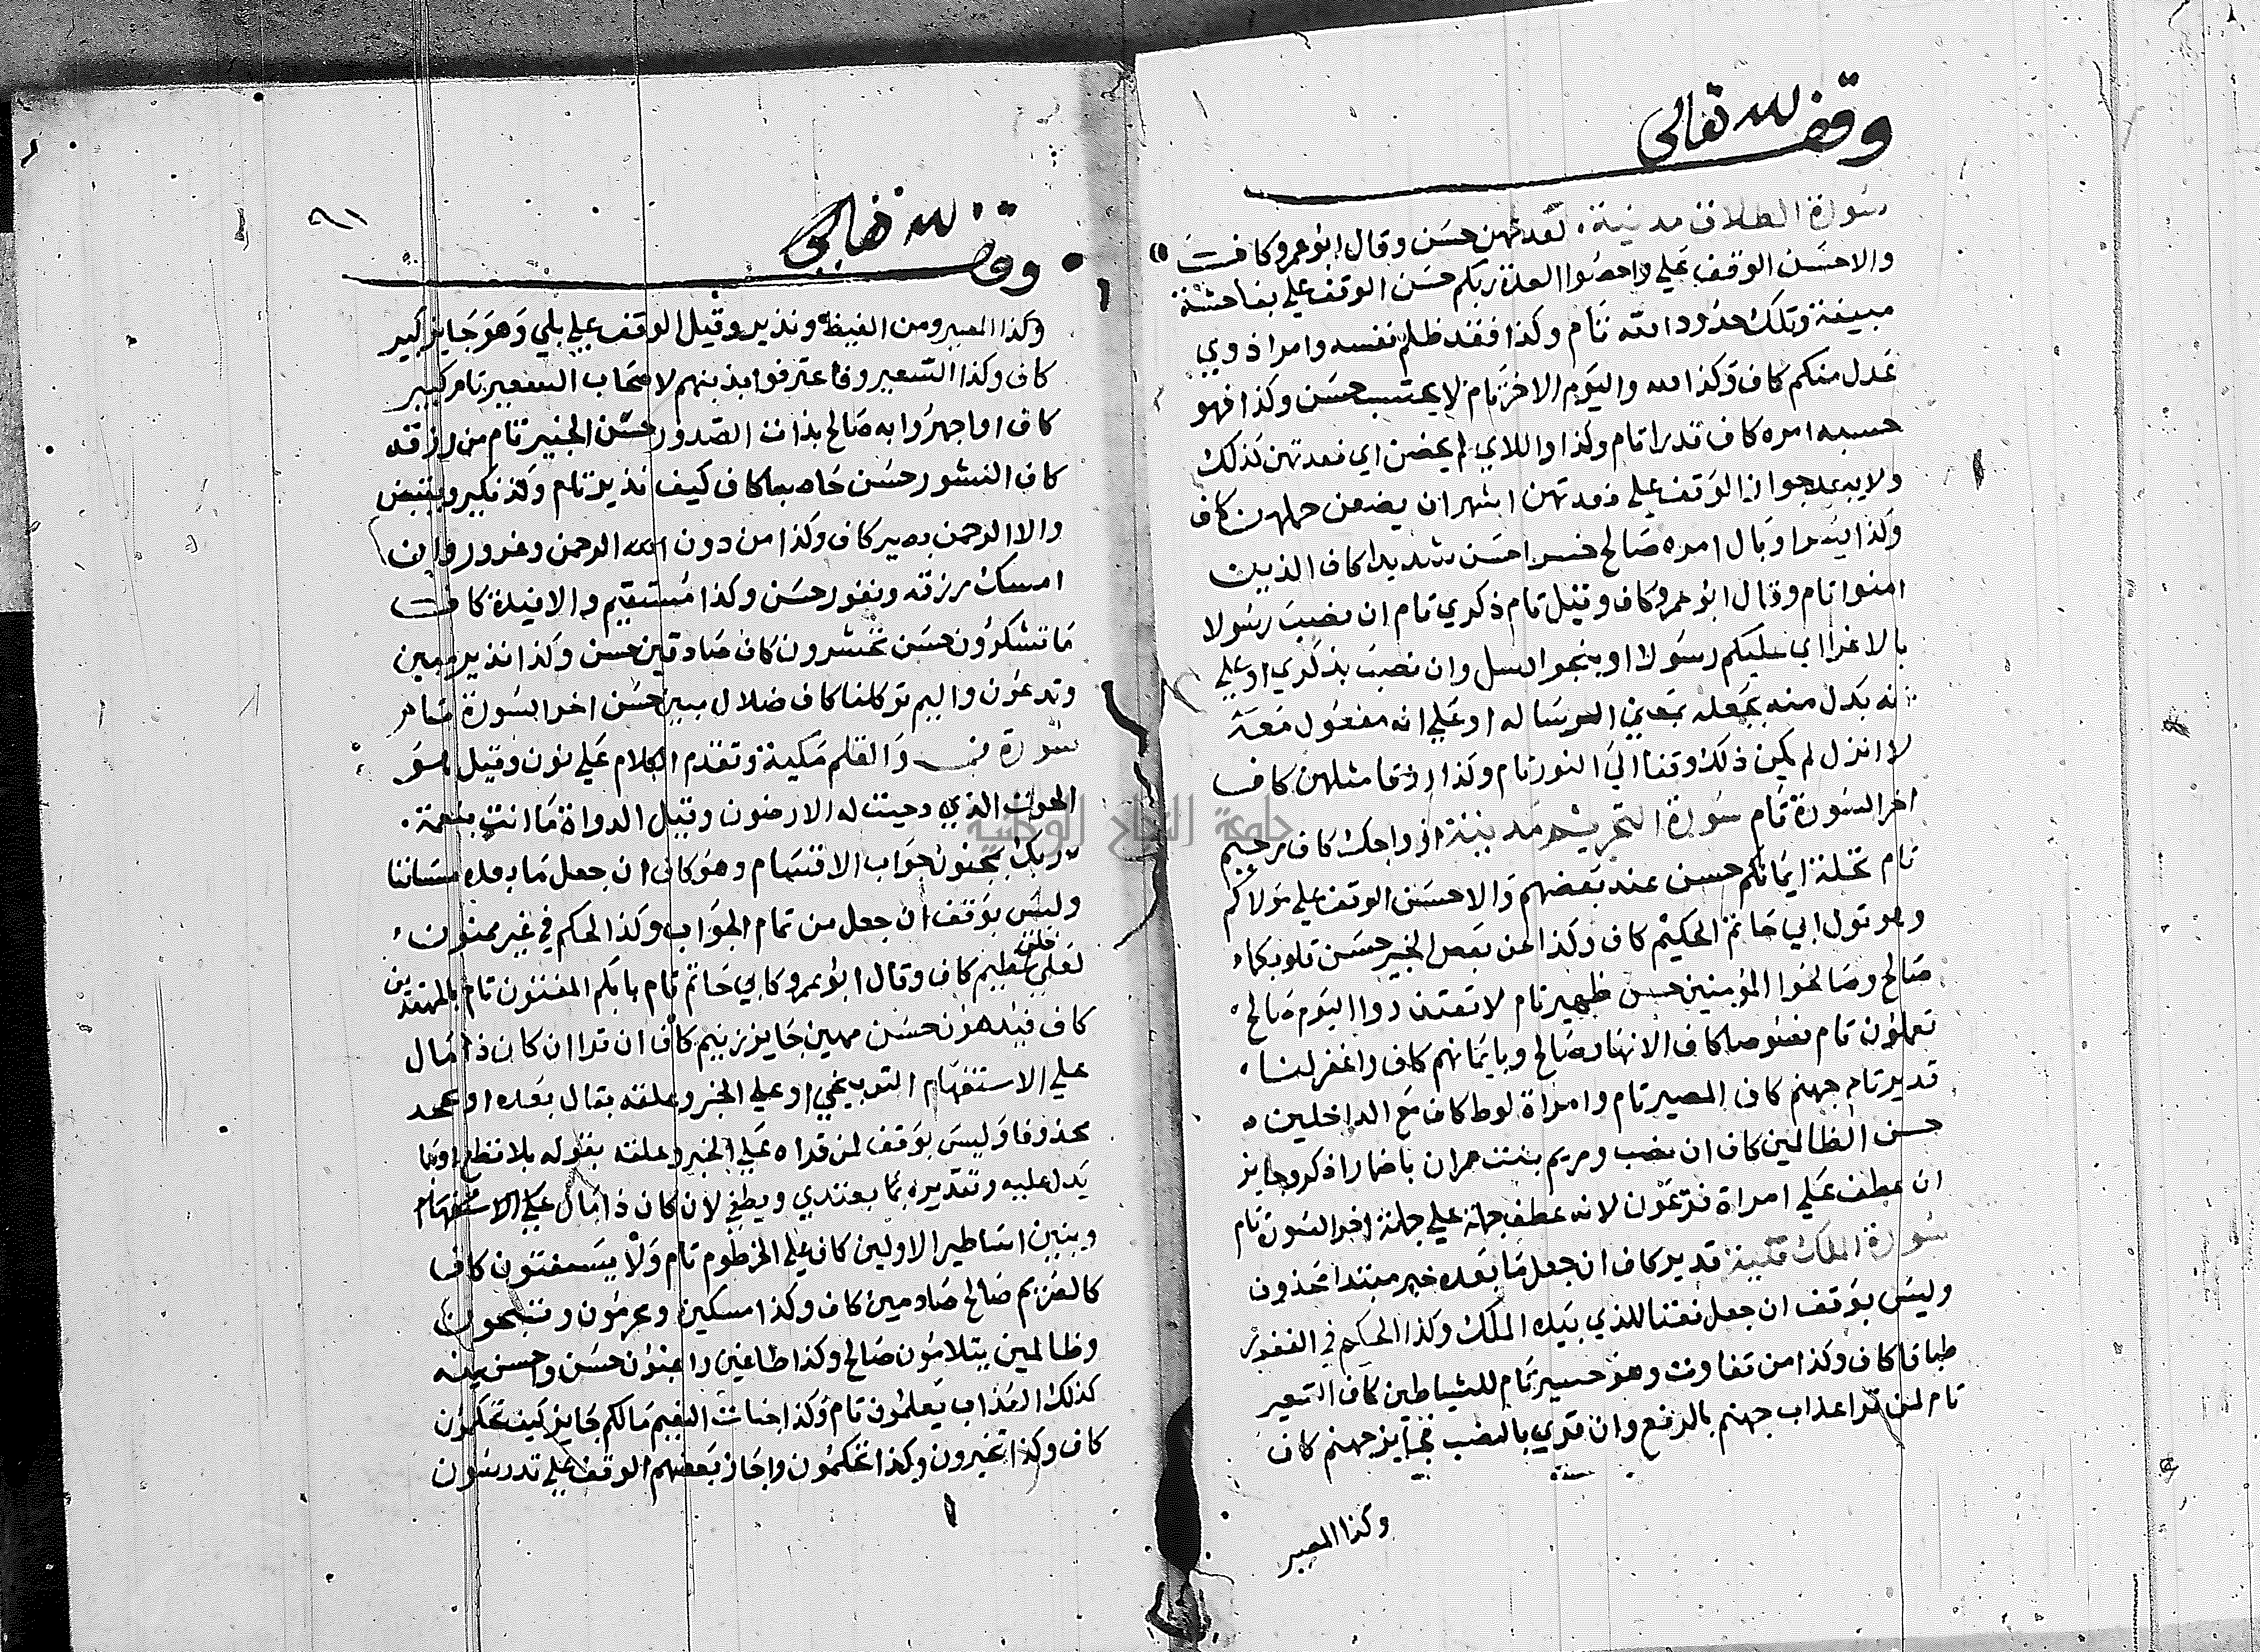 وقف لله تعالى
سورة الطلاق مدنية. لعدتهن حسن وقال ابو عمرو كاف
والاحسن الوقف علي واحصوا العدة ربكم حسن الوقف علي بفاحشة
مبينة وتلك حدود الله تام وكذا فقد ظلم نفسه وامرا ذوي
عدل منكم كاف وكذا لله واليوم الاخر تام لا يحتسب حسن وكذا فهو
حسبه امره كاف قدرا تام وكذا واللاي لم يحضن اي فعدتهن كذلك
ولا يبعد جواز الوقف علي فعدتهن اشهر ان يضعن حملهن كاف
وكذا يسرا وبال امره صالح خسرا حسن شديدا كاف الذين
امنوا تام وقال ابو عمرو كاف وقيل تام ذكري تام ان نصب رسولا
بالاغرا اي عليكم رسولا او بنحو ارسل وان نصب بذكري او علي
انه بدل منه بجعله بمعني الرسالة او علي انه مفعول معه
لا انزل لم يكن ذلك وقفا الي النور تام وكذا رزقا مثلهن كاف
اخر السورة تام سورة التحريم مدنية ازواجك كاف رحيم
تام تحلة ايمانكم حسن عند بعضهم والاحسن الوقف علي مولاكم
وهو قول ابي حاتم الحكيم كاف وكذا عن بعض الخبير حسن قلوبكما
صالح وصالحوا المؤمنين حسن ظهير تام لا تعتذروا اليوم صالح
تعملون تام نصوحا كاف الانهار صالح وبايمانهم كاف واغفر لنا
قدير تام جهنم كاف المصير تام وامراة لوط كاف مع الداخلين
حسن الظالمين كاف ان نصب ومريم بنت عمران باضمار اذكر وجايز
ان عطف علي امراة فرعون لانه عطف جملة علي جملة اخر السورة تام
سورة الملك مكية قدير كاف ان جعل ما بعده خبر مبتدا محذوف
وليس بوقف ان جعل نعتا للذي بيده الملك وكذا الحكم في الغفور
طباقا كاف وكذا من تفاوت وهو حسير تام للشياطين كاف السعير
تام لمن قرا عذاب جهنم بالرفع وان قري بالنصب فجايز جهنم كاف
وكذا المصير
وقف لله تعالى
٩١
وكذا المصير ومن الغيظ ونذير وقيل الوقف علي بلي وهو جايز كبير
كاف وكذا السعير وفاعترفوا بذنبهم لاصحاب السعير تام كبير
كاف او اجهروا به صالح بذات الصدور حسن الخبير تام من رزقه
كاف النشور حسن حاصبا كاف كيف نذير تام وكذا نكير ويقبضن
والا الرحمن بصير كاف وكذا من دون الرحمن وغرور وان
امسك رزقه ونفور حسن وكذا مستقيم والافيدة كاف
ما تشكرون حسن تحشرون كاف صادقين حسن وكذا نذير مبين
وتدعون واليم توكلنا كاف ضلال مبين حسن اخر السورة تام
سورة ن والقلم مكية وتقدم الكلام علي نون وقيل هو
الحوت الذي دحيت له الارضون وقيل الدواة ما انت بنعمة
ربك بمجنون جواب الاقسام وهو كاف ان جعل ما بعده مستانفا
وليس بوقف ان جعل من تمام الجواب وكذا الحكم في غير ممنون
لعلي خلق عظيم كاف وقال ابو عمرو كابي حاتم تام بايكم المفتون تام بالمهتدين
كاف فيدهنون حسن مهين جايز زنيم كاف ان قرا ان كان ذا مال
علي الاستفهام التوبيخي او علي الخبر وعلقه بقال بعده او بجحد
محذوفا وليس بوقف لمن قراه علي الخبر وعلقه بقوله بلا تطع او بما
يدل عليه وتقديره بما يعتدي ويطغي لان كان ذا مال علي الاستفهام
وبنين اساطير الاولين كاف علي الخرطوم تام ولا يستثنون كاف
كالصريم صالح صارمين كاف وكذا مسكين ومحرومون وتسبحون
وظالمين يتلاومون صالح وكذا طاغين راغبون حسن واحسن منه
كذلك العذاب يعلمون تام وكذا جنات النعيم مالكم جايز كيف تحكمون
كاف وكذا تخيرون وكذا تحكمون واجاز بعضهم الوقف علي تدرسون